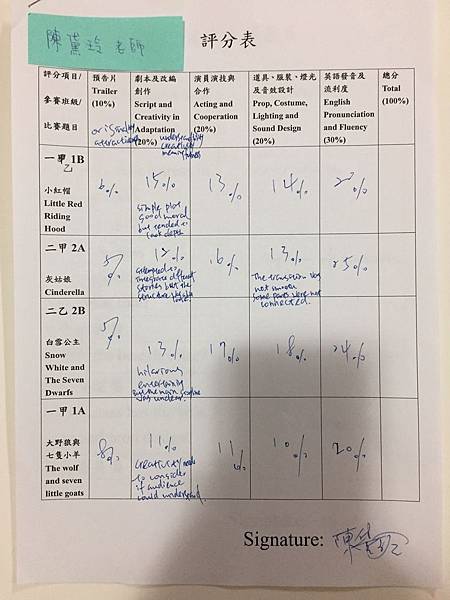 陳黛玲 老師
評分表
評分項目/
參賽班級/
比賽題目
預告片
Trailer
(10%)
劇本及改編
創作
Script and
Creativity in
Adaptation
(20%)
演員演技與
合作
Acting and
Cooperation
(20%)
道具、服裝、燈光
及音效設計
Prop, Costume,
Lighting and
Sound Design
(20%)
英語發音及
流利度
English
Pronunciation
and Fluency
(30%)
總分
Total
(100%)
originality
understandability
creativity
一甲 1B
乙
小紅帽
Little Red
Riding
Hood
6%
15%
simple plot
good moral
but tended to
lack depth
13%
14%
二甲 2A
灰姑娘
Cinderella
5%
12%
attempted to
integrate different
stories but the
structure
16%
13%
The transition was
not smooth
some parts were not
connected.
25%
二乙 2B
白雪公主
Snow
White and
The Seven
Dwarfs
5%
13%
hilarious
entertaining
but the main
was unclear.
17%
18%
24%
一甲 1A
大野狼與
七隻小羊
The wolf
and seven
little goats
8%
11%
creativity needs
to consider
if audience
could understand.
11%
10%
20%
Signature: